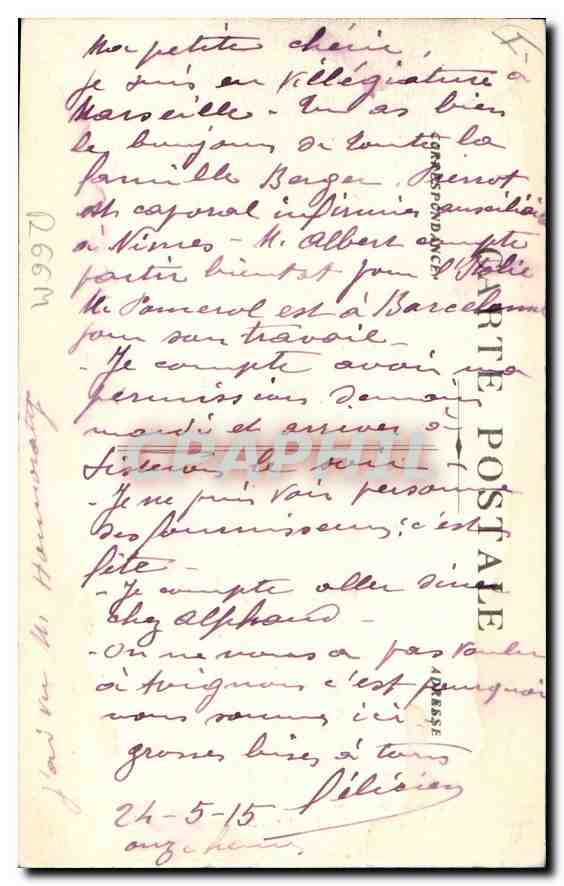 Ma petite chérie,
je suis en villégiature à
Marseille - Tu as bien
le bonjour de toute la
famille Berger. Pierrot
est caporal infirmier auxiliaire
à Nimes - M. Albert compte
partir bientot pour l'Italie
M. Pomerol est à Barcelonne
pour son travail -
- Je compte avoir ma
permission demain
mardi et arriver à
Sisteron le soir
- Je ne puis voir personne
des fournisseurs; c'est
fête -
- Je compte aller diner
chez Alphand -
- On ne nous a pas voulu
à Avignon c'est pourquoi
nous sommes ici
grosses bises à tous
Félicien
24-5-15
onze heures
J'ai vu M. Honnoraty
D66M
CORRESPONDANCE
CARTE POSTALE
ADRESSE
CPAPHIL